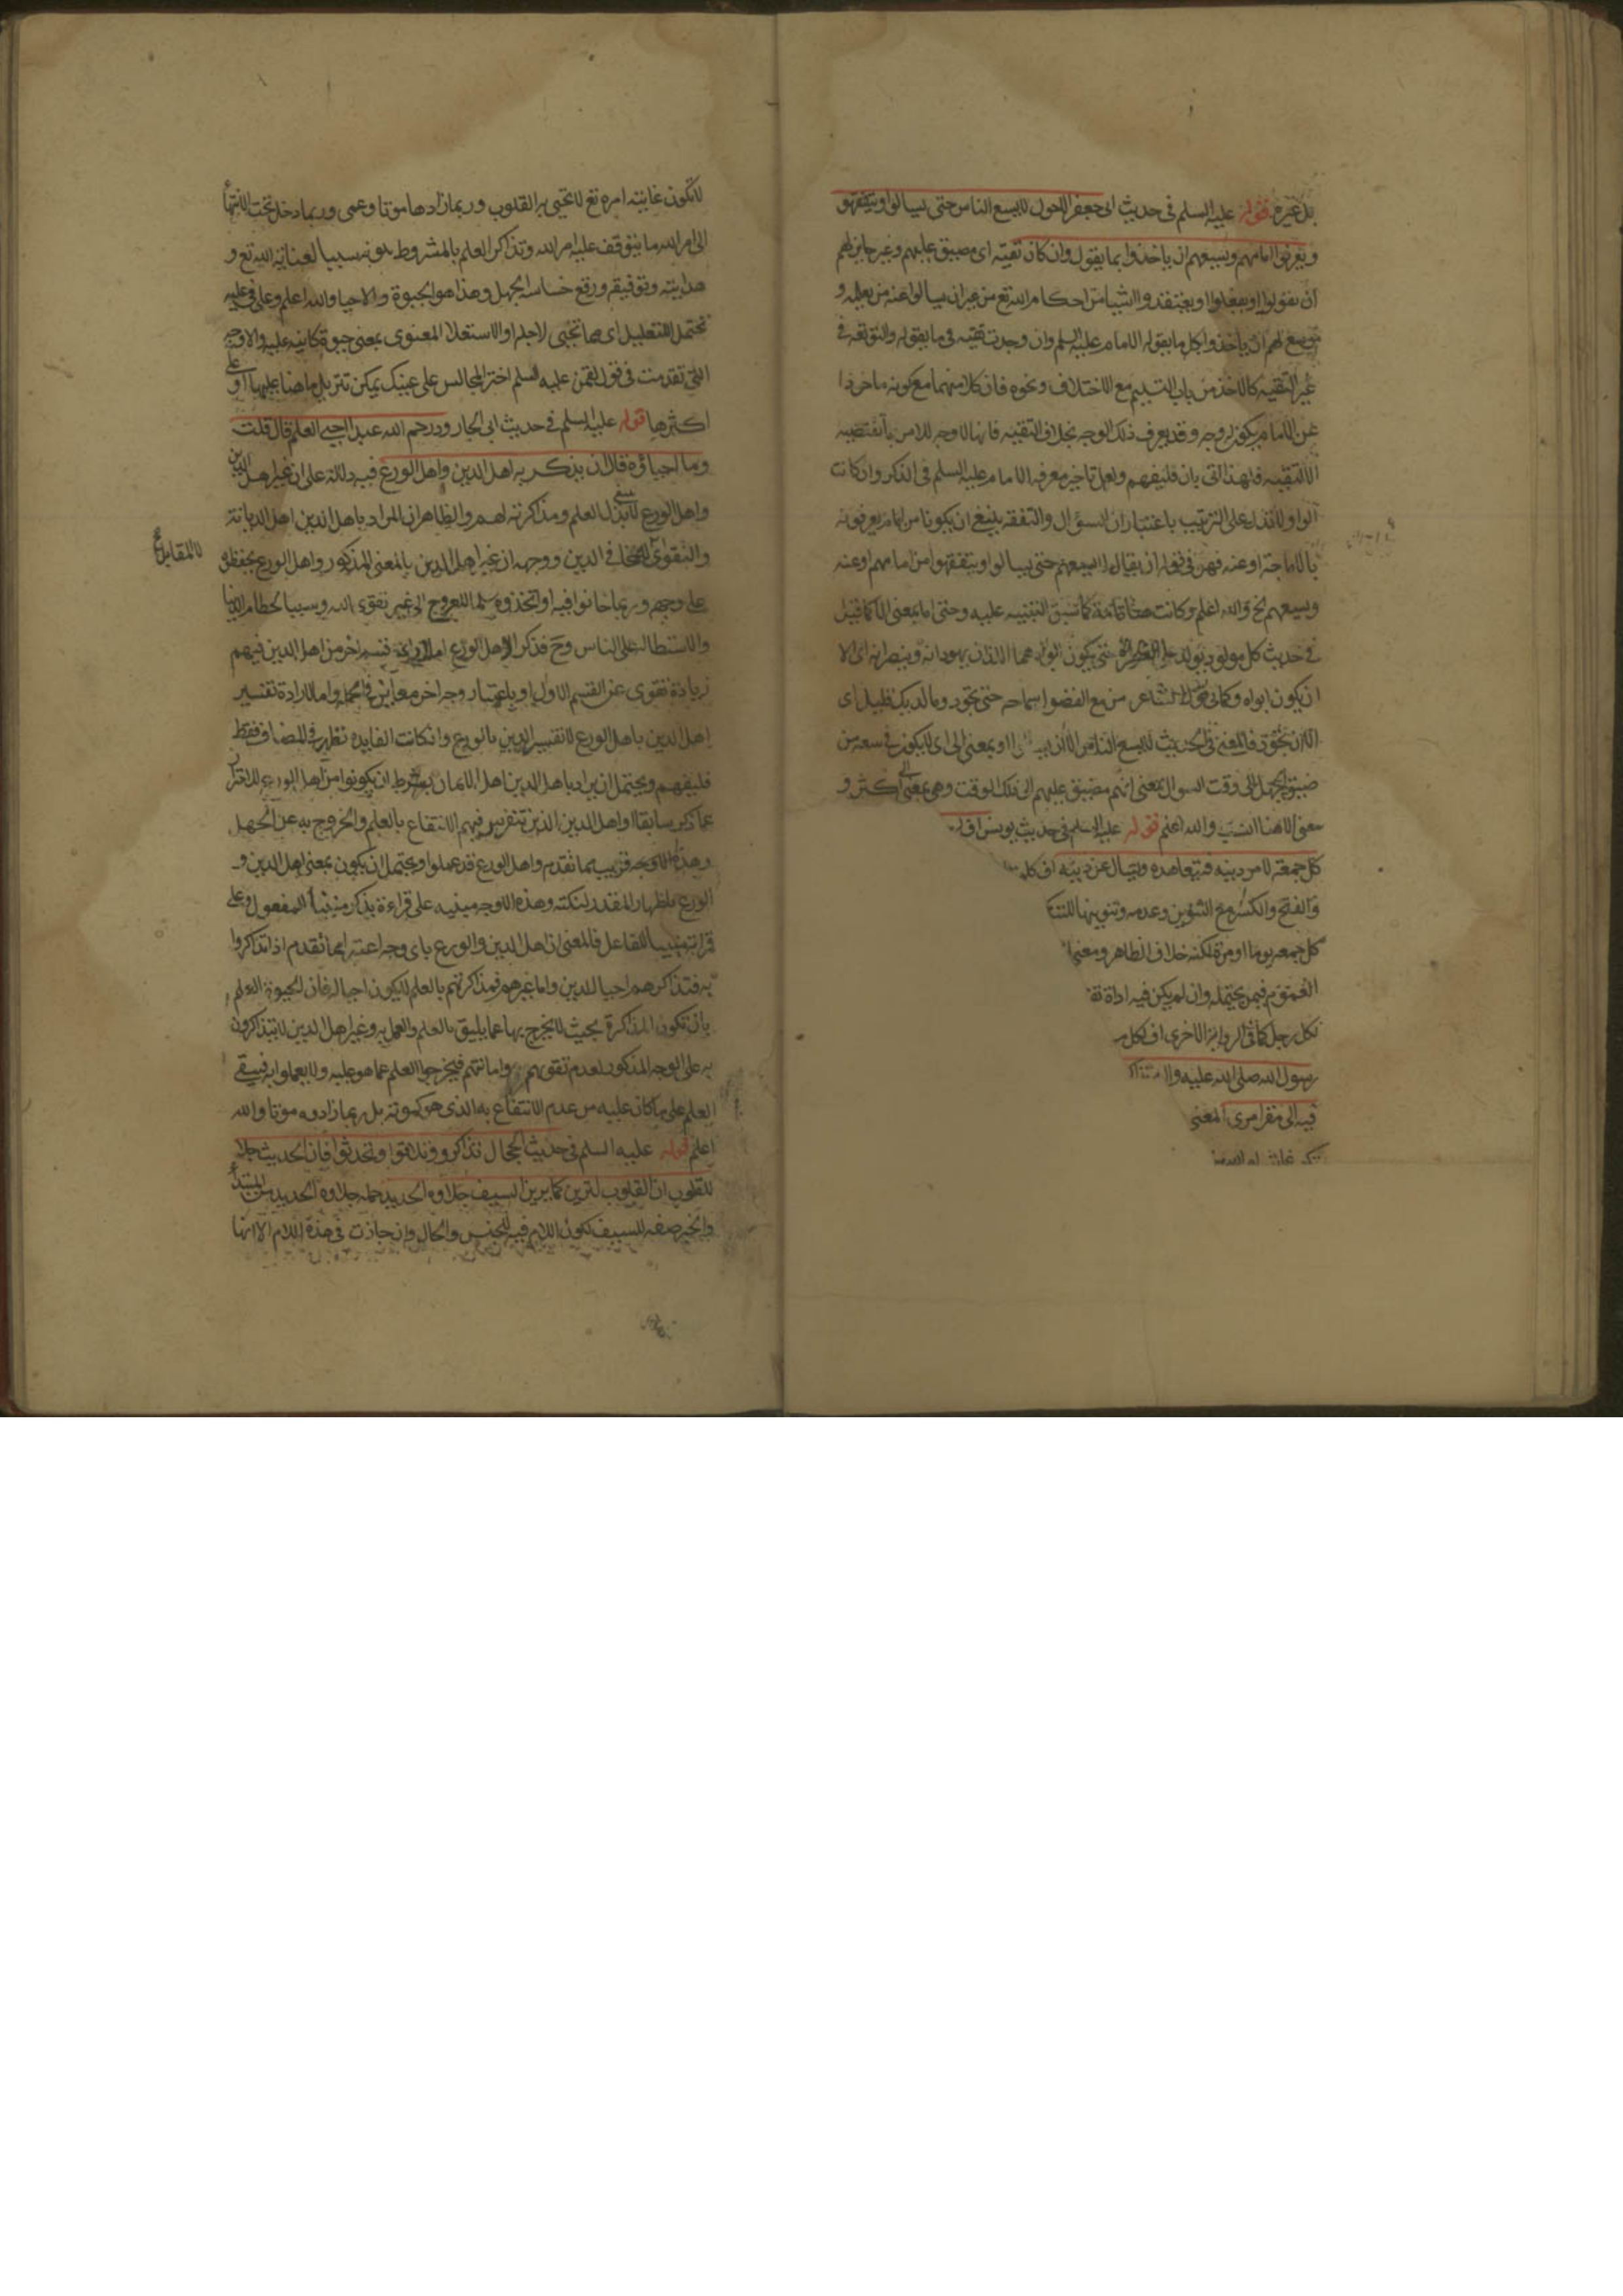 بل غيره قوله عليه السلم فى حديث ابى جعفر الاحول لا يسع الناس حتى يسالوا ويتفقهو
ويعرفوا امامهم ويسعهم ان ياخذوا بما يقول وان كان تقية اى مضيق عليهم وغير جايز لهم
ان يقولوا او يفعلوا او يعتقدوا شيا من احكام الله تع من غير ان يسالوا عنه من يعلمه و
توسع لهم ان ياخذوا بكل ما يقوله الامام عليه السلم وان وجدت تقية فى ما يقوله والتوقعه فى
غير التقية كالاخذ من باب التسليم مع الاختلاف ونحوه فان كلا منهما مع كونه ماخوذا
عن الامام يكون له وجه وقد يعرف ذلك الوجه بخلاف التقية فانه لا وجه للامر بما تقتضيه
الا التقية فلهذا اتى بان فليفهم ولعل تاخير معرفة الامام عليه السلم فى الذكر وان كانت
الواو لا تدل على الترتيب باعتبار ان السؤال والتفقه ينبغى ان يكونا من امام يعرفونه
بالامامة او عنه فهو فى قوله ان يقال لا يسعهم حتى يسالوا ويتفقهوا من امامهم او عنه
ويسعهم الخ والله اعلم وكانت هنا تامة كما سبق التنبيه عليه وحتى اما بمعنى الا كما قيل
فى حديث كل مولود يولد على الفطرة حتى يكون ابواه هما اللذان يهودانه وينصرانه اى الا
ان يكون ابواه وكما فى قول الشاعر من مع الفضول سماحة حتى تجود وما لديك قليل اى
الا ان تجود فالمعنى فى الحديث لا يسع الناس الا ان يسالوا او بمعنى الى اى لا يكون فى سعة من
ضيق الجهل الى وقت السوال بمعنى انهم مضيق عليهم الى ذلك الوقت وهى بمعنى الى اكثر و
معنى الا هنا انسب والله اعلم قوله عليه السلم فى حديث يونس اف لر
كل جمعة لامر دينه فيتعاهده ويسال عن دينه اف كلمة
والفتح والكسر مع التنوين وعدمه وتنوينها للتنك
كل جمعه يوما او مرة لكنه خلاف الظاهر ومعنى
العموم فيمن يحتمله وان لم يكن فيه اداة
لكل رجل كما فى الرواية الاخرى اف لكل
رسول الله صلى الله عليه واله
فيه الى مقر امرى المعنى
لا تكون غايته امره تع لا تحيى به القلوب وربما زادها موتا وعمى وربما دخل تحت الانتهاء
الى امر الله ما يتوقف عليه امر الله وتذاكر العلم بالمشروط بكونه سببا لعناية الله تع و
هدايته وتوفيقه ورفع خساسة الجهل وهذا هو الحيوة والاحيا والله اعلم وعلى فى عليه
تحتمل التعليل اى مما تحيى لاجله او الاستعلا المعنوى بمعنى حيوة كاينة عليه والاوجه
التى تقدمت فى قول لقمن عليه السلم اختر المجالس على عينك يمكن تنزيل ما هنا عليها او على
اكثرها قوله عليه السلم فى حديث ابى الجارود رحم الله عبدا احيى العلم قال قلت
وما احياؤه قال ان يذكر به اهل الدين واهل الورع فيه دلالة على ان غير اهل الدين
واهل الورع لا ينبغى بذل العلم ومذاكرته لهم والظاهر ان المراد باهل الدين اهل الديانة
والتقوى فى الدين ووجهه ان غير اهل الدين بالمعنى المذكور واهل الورع يحفظو
على وجهه وربما خانوا فيه او اتخذوه سلما للعروج الى غير تقوى الله وسببا لحطام الدنيا
والاستطالة على الناس وح فذكر اهل الورع قسم اخر من اهل الدين فيهم
زيادة تقوى عن القسم الاول او باعتبار وجه اخر معاير فى الجملة واما لارادة تفسير
اهل الدين باهل الورع لا تفسير الدين بالورع وان كانت الفايدة تظهر فى المضاف فقط
فليفهم ويحتمل ان يراد باهل الدين اهل الايمان بشرط ان يكونوا من اهل الورع للاقتران
عما ذكر سابقا او اهل الدين الذين تتفرس فيهم الانتفاع بالعلم والخروج به عن الجهل
وهذا الاوجه قريب مما تقدم واهل الورع قد عملوا ويحتمل ان يكون بمعنى اهل الدين و
الورع باظهار المقدر لنكتة وهذه الاوجه مبنيه على قراءة يذكر مبنيا للمفعول وعلى
قراءته مبنيا للفاعل فالمعنى ان اهل الدين والورع باى وجه اعتبر مما تقدم اذا تذاكروا
به فتذاكرهم احيا للدين واما غيرهم فمذاكرتهم بالعلم لا يكون احيا له فان الحيوة العلم
بان تكون المذاكرة بحيث لا يخرج بها عما يليق بالعلم والعمل به وغير اهل الدين لا يتذاكرون
به على الوجه المذكور لعدم تقويهم وامانتهم فيخرجوا العلم عما هو عليه ولا يعملوا به فيبقى
العلم على ما كان عليه من عدم الانتفاع به الذى هو كموته بل ربما زادوه موتا والله
اعلم قوله عليه السلم فى حديث الحجال تذاكروا وتلاقوا وتحدثوا فان الحديث جلا
للقلوب ان القلوب لترين كما يرين السيف جلاوه الحديد جملة جلاوه الحديد من المبتدا
والخبر صفه للسيف لكون اللام فيه للجنس والحال وان جازت فى هذه اللام الا انها